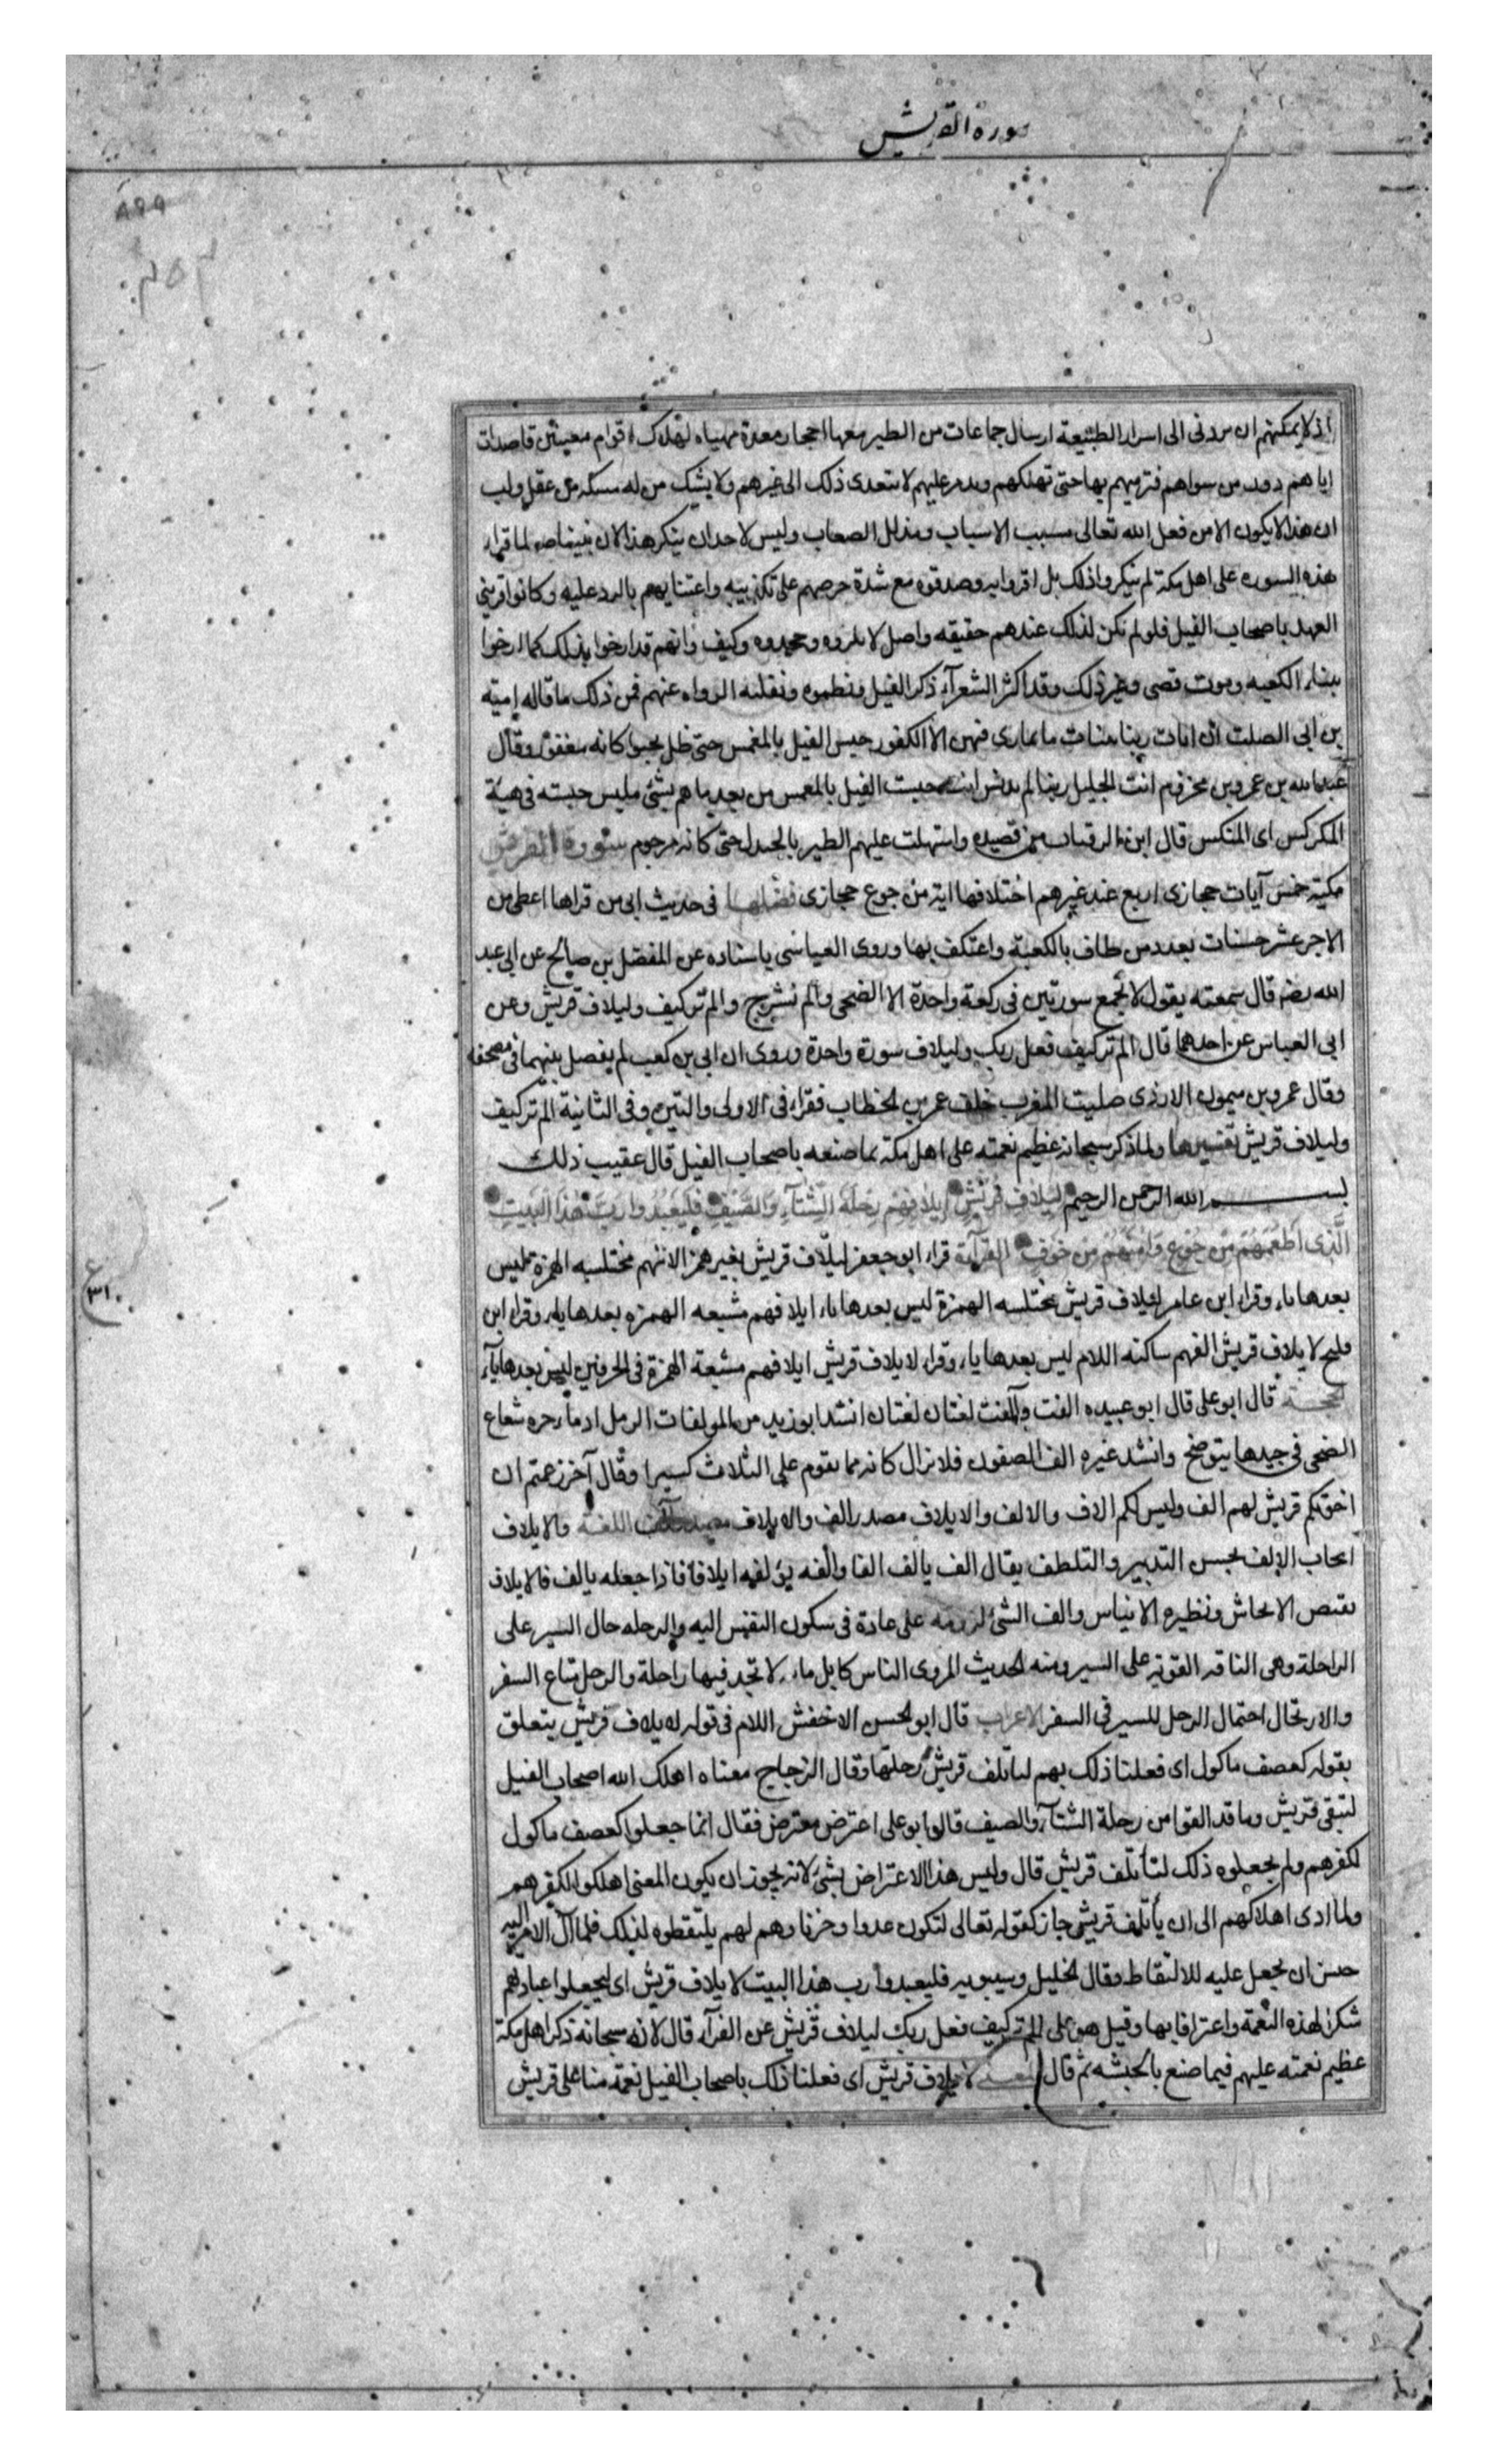 سورة القريش
٨٩٩
٣٥٣
اذ لا يمكنهم ان الى اسرار الطبيعة ارسال جماعات من الطير معها احجار معدة مهياه لهلاك اقوام معينين قاصدات
اياهم دون من سواهم فترميهم بها حتى تهلكهم ويدمر عليهم لا يتعدى ذلك الى غيرهم ولا يشك من له مسكه من عقل ولب
ان هذا لا يكون الا من فعل الله تعالى مسبب الاسباب ومذلل الصعاب وليس لاحد ان ينكر هذا لان نبينا صم لما قراء
هذه السوره على اهل مكة لم ينكروا ذلك بل اقروا به وصدقوه مع شدة حرصهم على تكذيبه واعتنايهم بالرد عليه وكانوا قريبى
العهد باصحاب الفيل فلو لم يكن لذلك عندهم حقيقه واصل لانكروه وجحدوه وكيف وانهم قد ارخوا بذلك كما ارخوا
ببناء الكعبه وموت قصى وغير ذلك وقد اكثر الشعرآء ذكر الفيل ونظموه ونقلته الرواه عنهم فمن ذلك ما قاله امية
بن ابى الصلت ان ايات ربنا بينات ما يمارى فيهن الا الكفور حبس الفيل بالمغمس حتى ظل يحبوا كانه معقور وقال
عبد الله بن عمرو بن مخزوم انت الجليل ربنا لم تدنس انت حبست الفيل بالمغمس من بعد ما هم بشئ مليس حبسته فى هيئة
المكركس اى المنكس قال ابن الرقيات من قصيده واستهلت عليهم الطير بالجندل حتى كانه مرجوم سورة القريش
مكية خمس آيات حجازى اربع عند غيرهم اختلافها اية من جوع حجازى فضلها فى حديث ابى من قراها اعطى من
الاجر عشر حسنات بعدد من طاف بالكعبة واعتكف بها وروى العياشى باسناده عن المفضل بن صالح عن ابى عبد
الله رضه قال سمعته يقول لا تجمع سورتين فى ركعة واحدة الا الضحى والم نشرح والم تر كيف وليلاف قريش وعن
ابى العباس عن احدهما قال الم تر كيف فعل ربك وليلاف سورة واحدة وروى ان ابى بن كعب لم يفصل بينهما فى مصحفه
وقال عمرو بن ميمون الازدى صليت المغرب خلف عمر بن الخطاب فقراء فى الاولى والتين وفى الثانية الم تر كيف
وليلاف قريش تفسيرها ولما ذكر سبحانه عظيم نعمته على اهل مكة بما صنعه باصحاب الفيل قال عقيب ذلك
بسم الله الرحمن الرحيم لِيلَافِ قُرَيْشٍ اِيلَافِهِمْ رِحْلَةَ الشِّتَآءِ وَالصَّيْفِ فَلْيَعْبُدُوا رَبَّ هٰذَا الْبَيْتِ
الَّذِى اَطْعَمَهُمْ مِنْ جُوعٍ وَاٰمَنَهُمْ مِنْ خَوْفٍ القرآءة قراء ابو جعفر ليلاف قريش بغير همز الافهم مختلسه الهمزه ليس
بعدها ياء وقراء ابن عامر لئلاف قريش مختلسه الهمزة ليس بعدها ياء ايلافهم مشبعه الهمزه بعدها ياء وقراء ابن
فليح لايلاف قريش الفهم ساكنه اللام ليس بعدها ياء وقراء لايلاف قريش ايلافهم مشبعة الهمزة فى الحرفين ليس بعدها ياء
الحجة قال ابو على قال ابو عبيده الفت وآلفت لغتان لغتان انشد ابو زيد من المولفات الرمل ادماء حره شعاع
الضحى فى جيدها يتوضح وانشد غيره الف الصفون فلا نزال كانه مما يقوم على الثلاث كسيرا وقال آخر زعمتم ان
اخوتكم قريش لهم الف وليس لكم الاف والالف والايلاف مصدر الف والايلاف مصدر آلف اللغة والايلاف
ايجاب الالف بحسن التدبير والتلطف يقال الف يالف الفا والفه يؤلفه ايلافا فاذا جعله يالف فالايلاف
نقيض الايحاش ونظيره الايناس والف الشئ لزومه على عادة فى سكون النفس اليه والرحله حال السير على
الراحلة وهى الناقه القويه على السير ومنه الحديث المروى الناس كابل ماءه لا تجد فيها راحلة والرحل متاع السفر
والارتحال احتمال الرحل للسير فى السفر الاعراب قال ابو الحسن الاخفش اللام فى قوله لايلاف قريش يتعلق
بقوله كعصف ماكول اى فعلنا ذلك بهم لتاتلف قريش رحلتها وقال الزجاج معناه اهلك الله اصحاب الفيل
لتبقى قريش وما قد الفوا من رحلة الشتآء والصيف قال ابو على اعترض معترض فقال انما جعلوا كعصف ماكول
لكفرهم ولم يجعلوه ذلك لتأتلف قريش قال وليس هذا الاعتراض بشئ لانه يجوز ان يكون المعنى اهلكوا لكفرهم
ولما ادى اهلاكهم الى ان يأتلف قريش جاز كقوله تعالى لتكون عدوا وحزنا وهم لهم يلتقطوه لذلك فلما آل الامر اليه
حسن ان يجعل عليه للالتقاط وقال الخليل وسيبويه فليعبدوا رب هذا البيت لايلاف قريش اى ليجعلوا عبادتهم
شكرا لهذه النعمة واعترافا بها وقيل هو على الم تر كيف فعل ربك ليلاف قريش عن الفرآء قال لانه سبحانه ذكر اهل مكة
عظيم نعمته عليهم فيما صنع بالحبشه ثم قال لايلاف قريش اى فعلنا ذلك باصحاب الفيل نعمة منا على قريش
ع
٣١٠